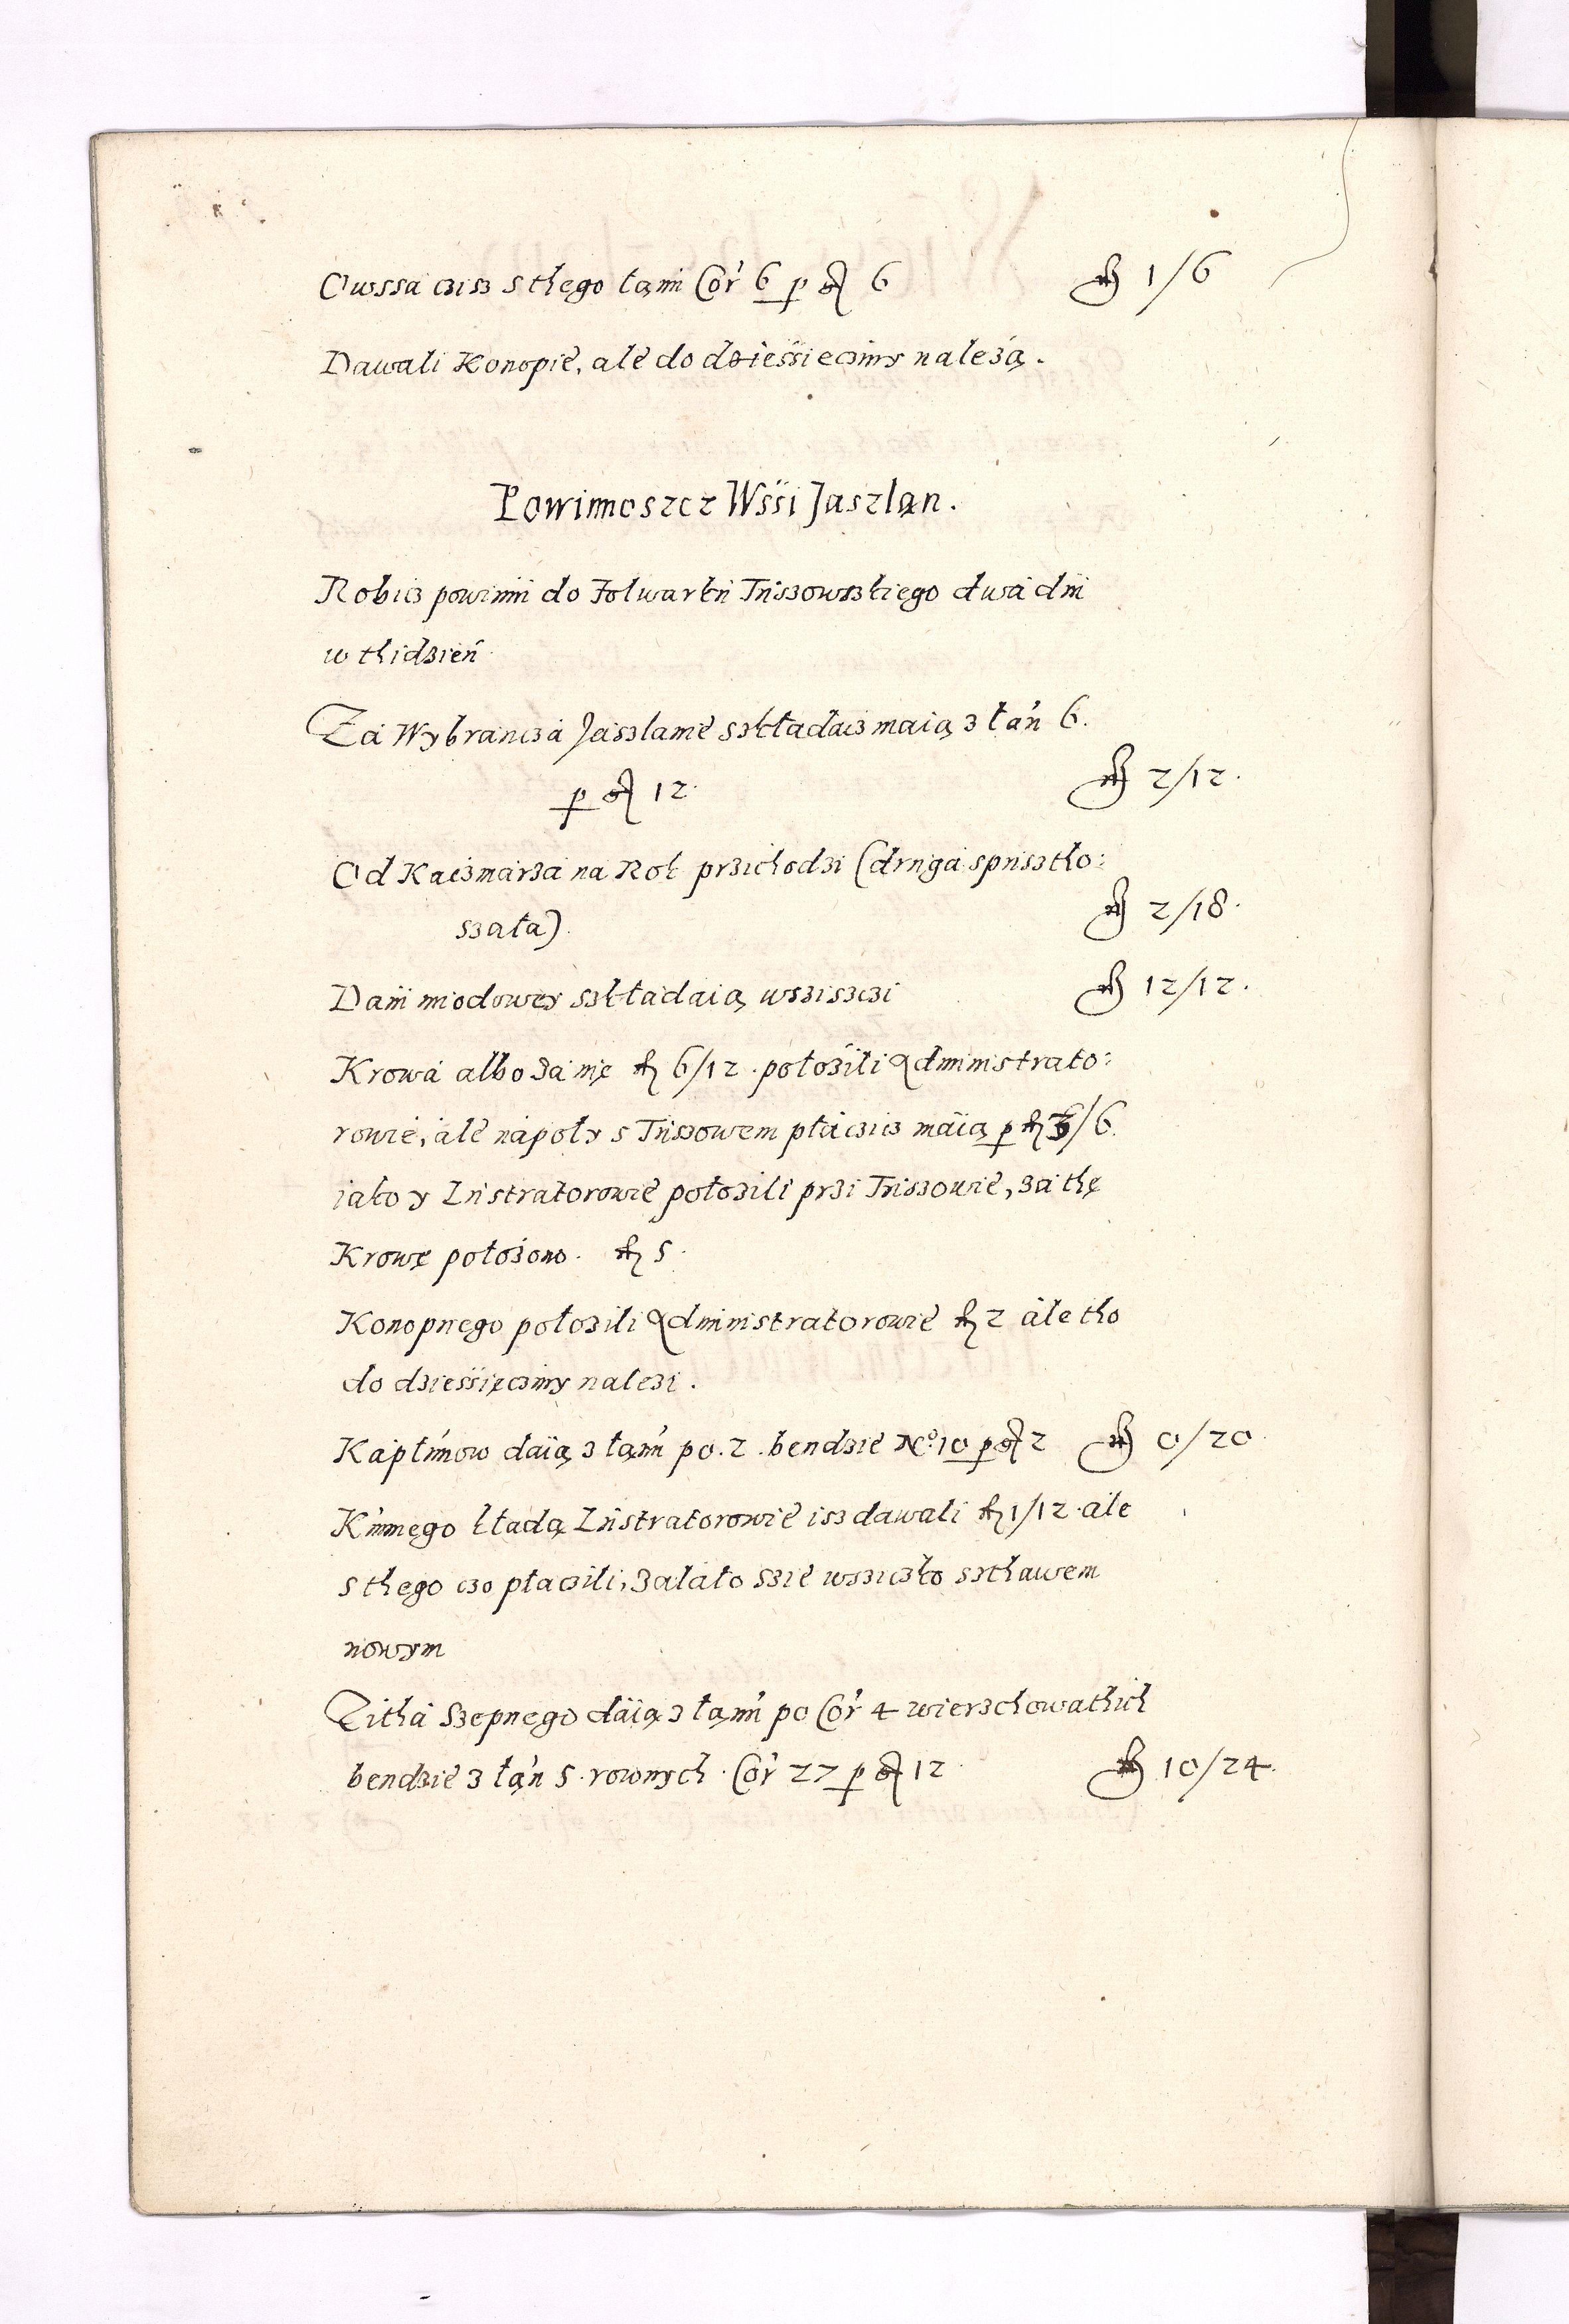 Owssa czisz s thego łąnu Cor 6 p gr 6 fl 1/6
Dawali Konopie, ale do dziessiecziny należą.
Powinnoszcz Wssi Jaszlan.
Robicz powinni do Folwarku Tuszowszkiego dwa dni
w thidzień
Za Wybrancza Jaszlanie szkładacz maią z łan 6.
p gr 12. fl 2/12.
Od Kaczmarza na Rok przichodzi (druga spusztho:
szała). fl 2/18.
Dani miodowey szkładaią wszisczi fl 12/12.
Krowa albo za nię fl 6/12. położili Administrato:
rowie, ale napoły s Tuszowem płacicz maią p fl 3/6.
iako y Lustratorowie położili przi Tuszowie, za thę
Krowę położono. fl 5.
Konopnego położili Administratorowie fl 2 ale tho
do dziessięcziny należi.
Kapłunow daią z łąnu po. 2. bendzie No. 10 p gr 2 fl 0/20
Kunnego kładą Lustratorowie isz dawali fl 1/12. ale
s thego czo płaczili, zalało szie wsziczko szthawem
nowym
Zitha szepnego daią z łąnu po Cor 4 wierzchowathich
bendzie z łąn 5. rownych. Cor 27 p gr 12. fl 10/24.